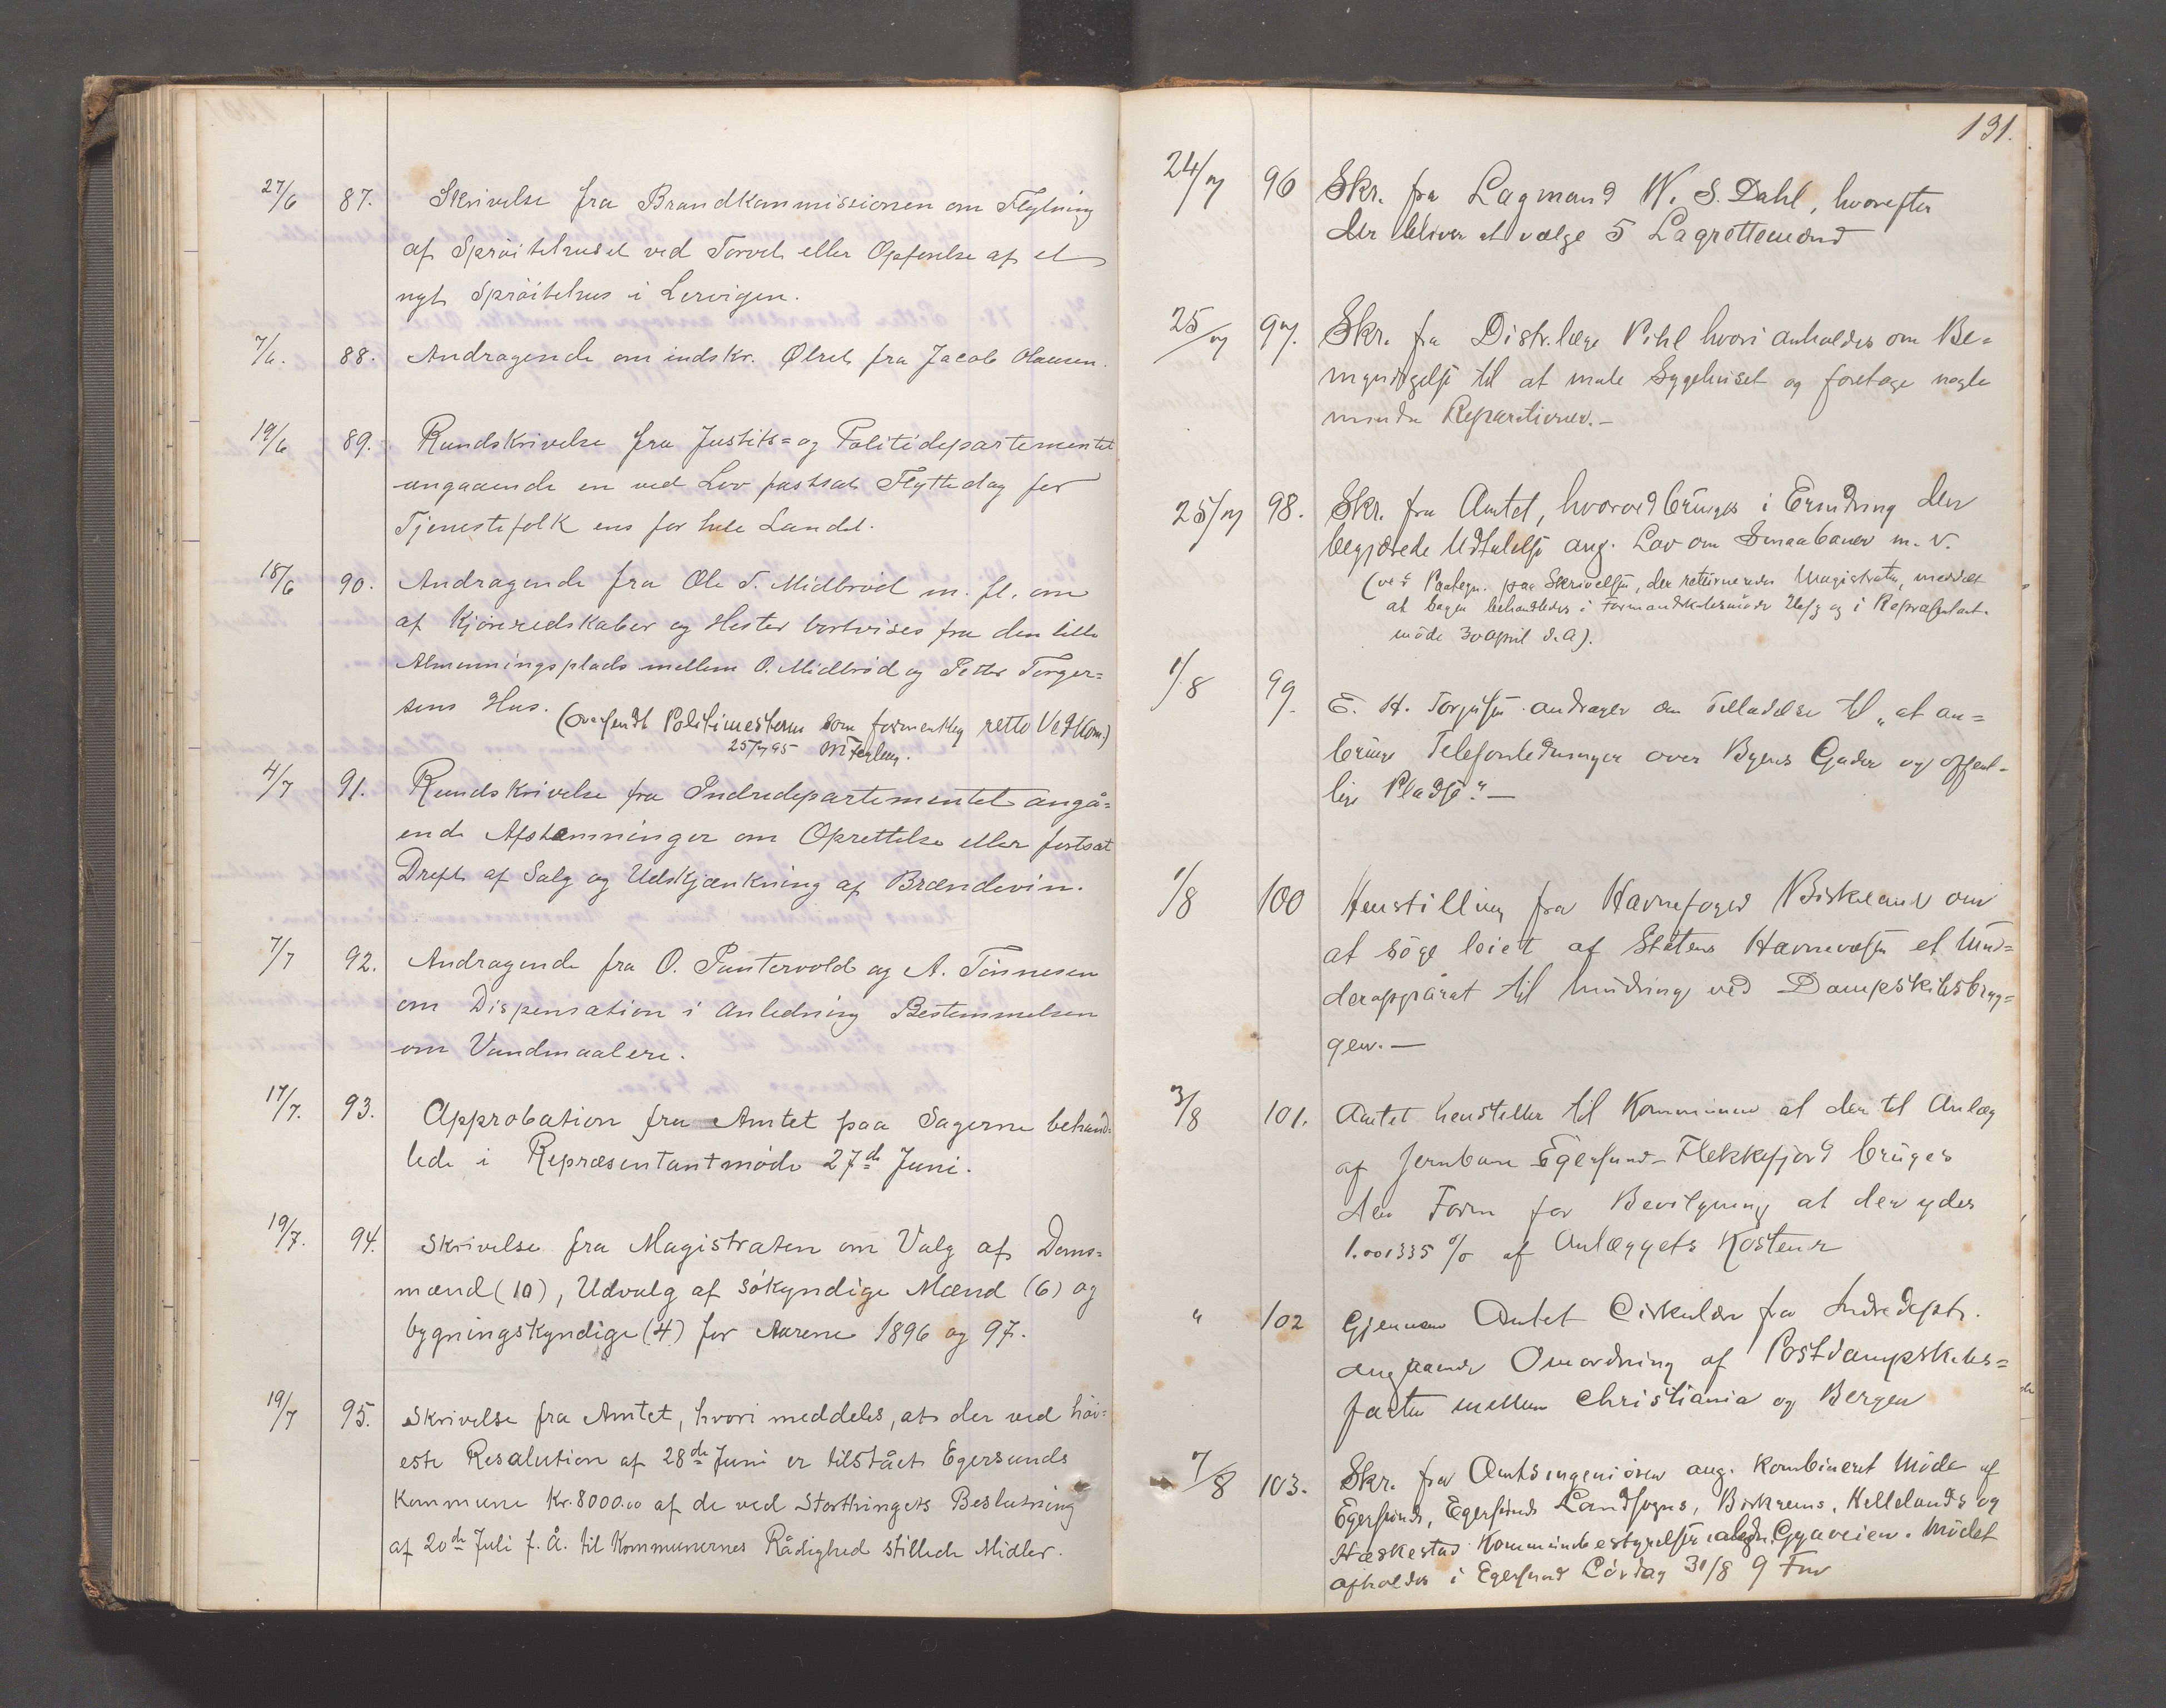 27/6 87. Skrivelse fra Brandkommissionen om Flytning
af Sprøitehuset ved Torvet eller Opførelse af et
nyt Sprøitehus i Lervigen.
7/6. 88. Andragende om indskr. Ølret fra Jacob Olausen.
19/6 89. Rundskrivelse fra Justits= og Politidepartementet
angaaende en ved Lov fastsat Flyttedag for
Tjenestefolk ens for hele Landet.
18/6 90. Andragende fra Ole T. Midbrød m. fl. om
at Kjøreredskaber og Hester bortvises fra den lille
Almenningsplads mellem O. Midbrød og Petter Torger=
sens Hus. (Oversendt Politimesteren som formentlig rette Vedkom.)
25/7 95
4/7 91. Rundskrivelse fra Indredepartementet angå=
ende Afstemninger om Oprettelse eller fortsat
Drift af Salg og Udskjænkning af Brændevin.
7/7 92. Andragende fra O. Puntervold og A. Tönnesen
om Dispensation i Anledning Bestemmelsen
om Vandmaalere.
17/7. 93. Approbation fra Amtet paa Sagerne behand=
lede i Repræsentantmöde 27de Juni.
19/7. 94. Skrivelse fra Magistraten om Valg af Doms=
mænd (10), Udvalg af sökyndige Mænd (6) og
bygningskyndige (4) for Aarene 1896 og 97.
19/7 95. Skrivelse fra Amtet, hvori meddeles, at der ved höi=
este Resolution af 28de Juni er tilstået Egersunds
Kommune Kr. 8000.00 af de ved Storthingets Beslutning
af 20de Juli f. Å. til Kommunernes Rådighed stillede Midler.
131.
24/7 96 Skr. fra Lagmand W. S. Dahl, hvorefter
der bliver at vælge 5 Lagrettemænd
25/7 97. Skr. fra Distr.læge Pihl hvori anholdes om Be=
myndigelse til at male Sygehuset og foretage nogle
mindre Reparationer.—
25/7 98. Skr. fra Amtet, hvorved bringes i Erindring den
begjærede Udtalelse ang. Lov om Smaabaner m. v.
(ved Paategn. paa Skrivelsen, der returneredes Magistraten, meddelt
at Sagen behandledes i Formandskabsmöde og i Repræsentant-
möde 30 April d. A).
1/8 99. E. H. Torjusen andrager om Tilladelse til „at an=
bringe Telefonledninger over Byens Gader og offent-
lige Pladse".—
1/8 100 Henstilling fra Havnefoged Birkeland om
at söge leiet af Statens Havnevæsen et Mud=
derapparat til Mudring ved Dampskibsbryg=
gen.—
3/8 101. Amtet henstiller til Kommunen at der til Anlæg
af Jernbane Egersund–Flekkefjord bruges
den Form for Bevilgning at der ydes
1.001335 % af Anlæggets Kostende
" 102 Gjennem Amtet Cirkulære fra Indredept.
angaaende Omordning af Postdampskibs=
farten mellem Christiania og Bergen
7/8 103. Skr. fra Amtsingeniören ang. kombineret Möde af
Egersunds, Egersunds Landsogns, Birkrems, Hellelands og
Heskestad Kommunebestyrelser Gyaveien. Mödet
afholdes i Egersund Lördag 31/8 9 Fm